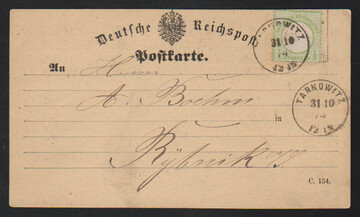 Deutsche Reichspost
Postkarte.
TARNOWITZ
31 10
74
12 1N
An Herrn
A. Boehm
TARNOWITZ
31 10
74
12 1N
in
Rybnik
C. 154.